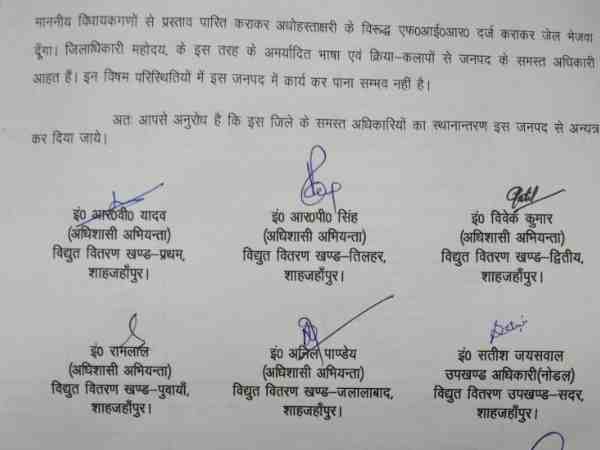 माननीय विधायकगणों से प्रस्ताव पारित कराकर अधोहस्ताक्षरी के विरूद्ध एफ0आई0आर0 दर्ज कराकर जेल भेजवा
दूँगा। जिलाधिकारी महोदय, के इस तरह के अमर्यादित भाषा एवं क्रिया-कलापों से जनपद के समस्त अधिकारी
आहत हैं। इन विषम परिस्थितियों में इस जनपद में कार्य कर पाना सम्भव नहीं है।
अतः आपसे अनुरोध है कि इस जिले के समस्त अधिकारियों का स्थानान्तरण इस जनपद से अन्यत्र
कर दिया जाये।
इं0 आर0वी0 यादव इं0 आर0पी0 सिंह इं0 विवेक कुमार
(अधिशासी अभियन्ता) (अधिशासी अभियन्ता) (अधिशासी अभियन्ता)
विद्युत वितरण खण्ड-प्रथम, विद्युत वितरण खण्ड-तिलहर, विद्युत वितरण खण्ड-द्वितीय,
शाहजहाँपुर। शाहजहाँपुर। शाहजहाँपुर।
इं0 रामलाल इं0 अनिल पाण्डेय इं0 सतीश जयसवाल
(अधिशासी अभियन्ता) (अधिशासी अभियन्ता) उपखण्ड अधिकारी(नोडल)
विद्युत वितरण खण्ड-पुवायाँ, विद्युत वितरण खण्ड-जलालाबाद, विद्युत वितरण उपखण्ड-सदर,
शाहजहाँपुर। शाहजहाँपुर। शाहजहाँपुर।